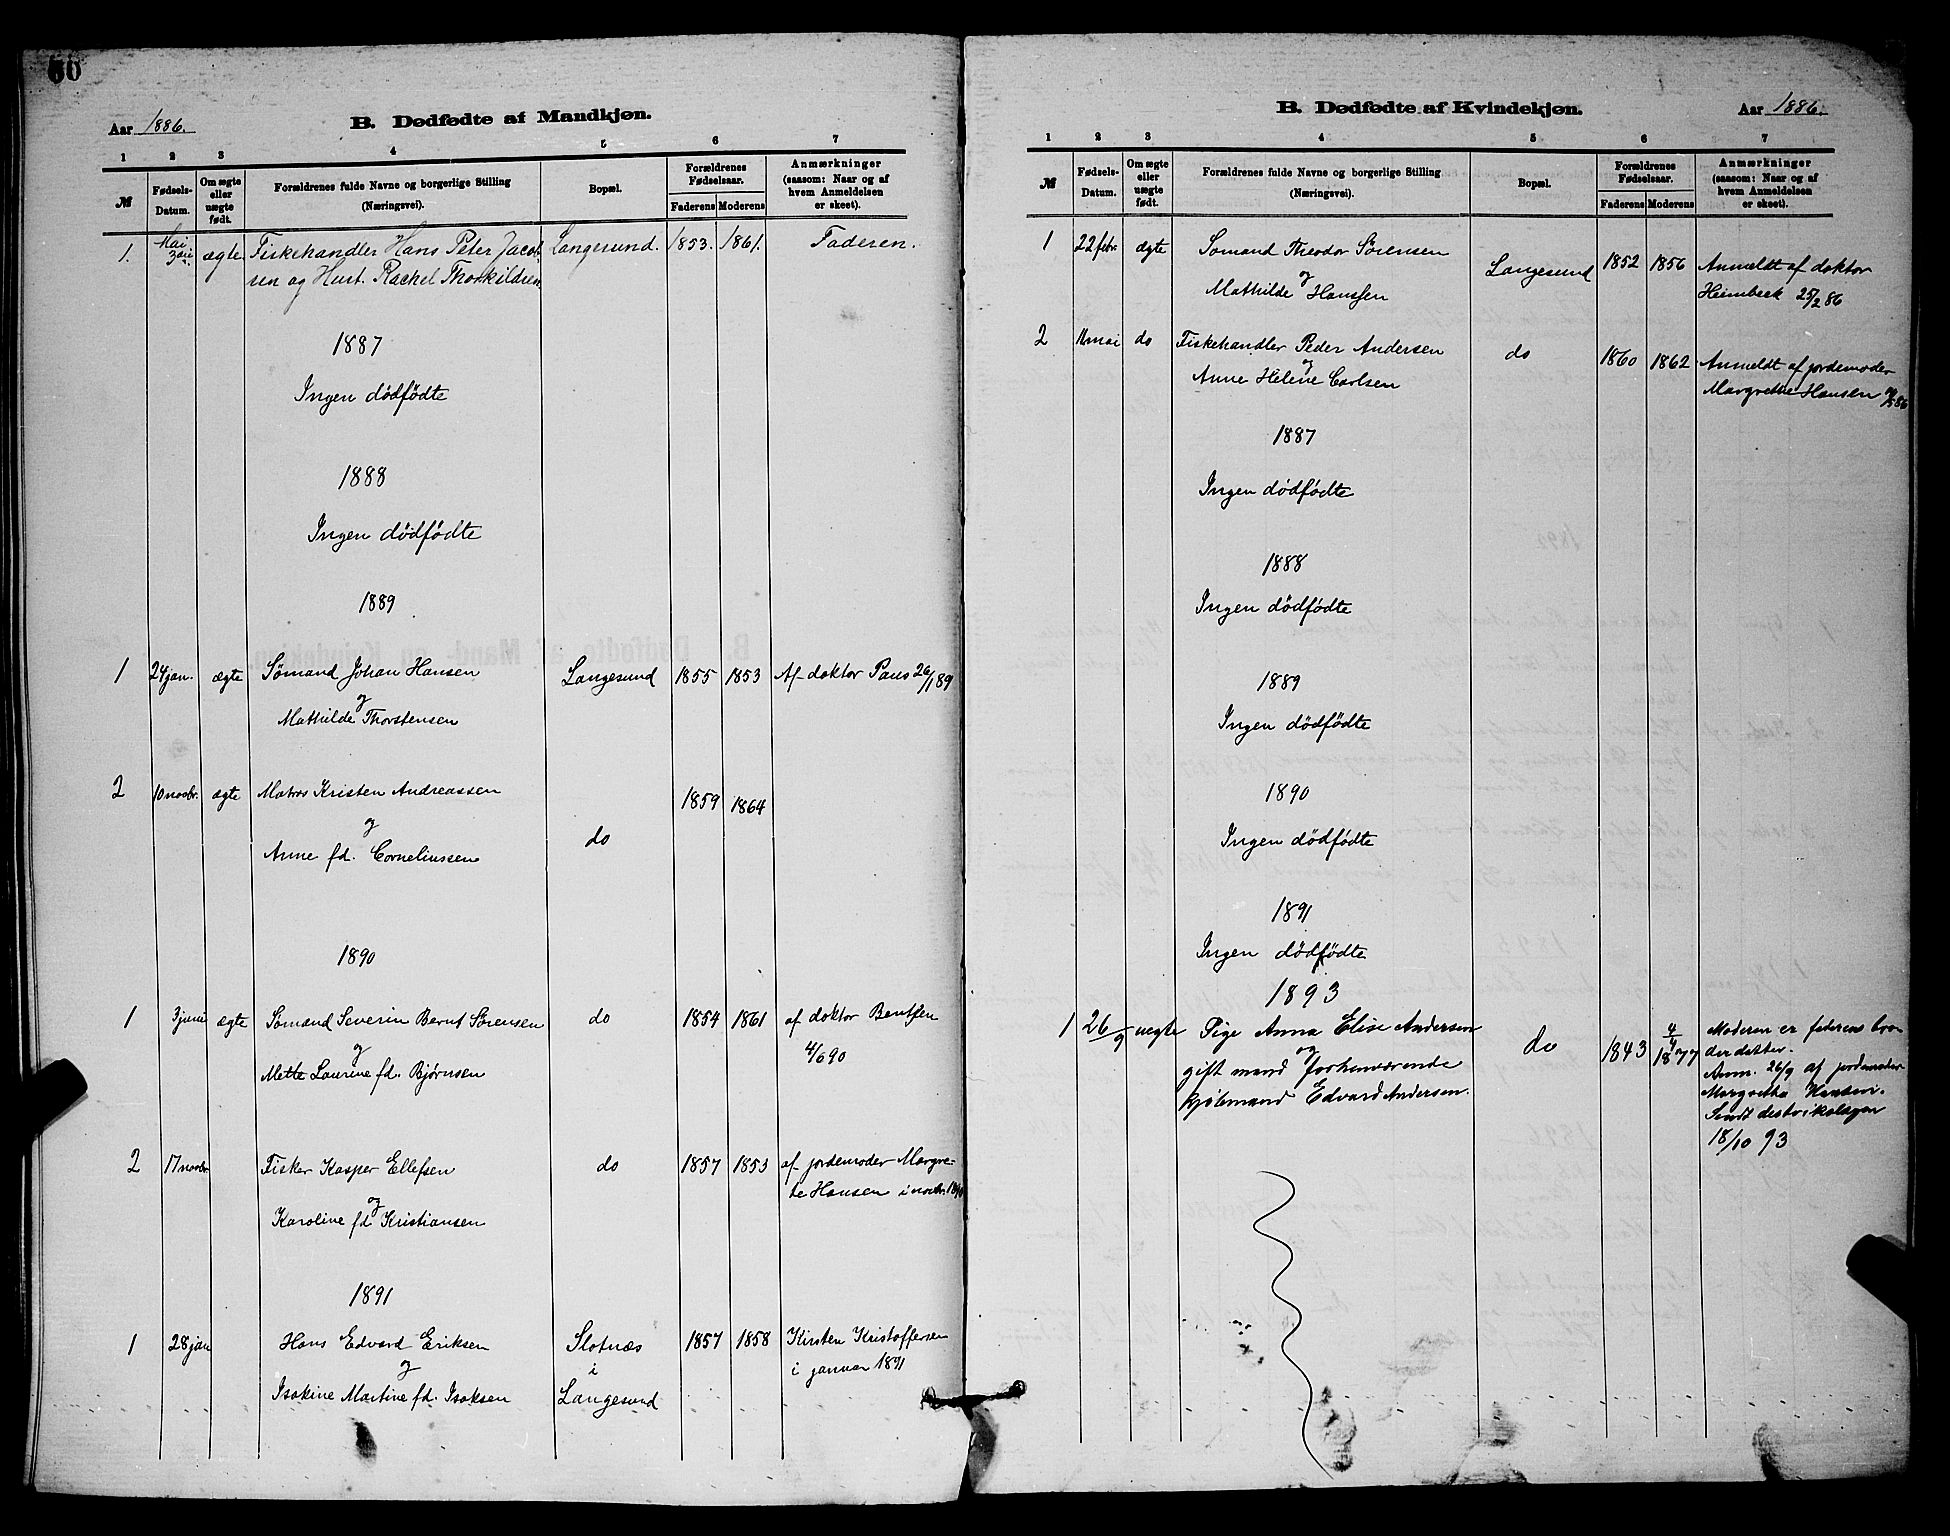 60
Aar 1886.
B. Dødfødte af Mandkjøn.
1 2 3 4 5 6 7
№
Fødsels-
Datum.
Om ægte
eller
uægte
født.
Forældrenes fulde Navne og borgerlige Stilling
(Næringsvei).
Bopæl.
Forældrenes
Fødselsaar.
Faderens Moderens
Anmærkninger
(saasom: Naar og af
hvem Anmeldelsen
er skeet).
1. Mai ægte Fiskehandler Hans Peter Jacob- Langesund. 1853. 1861. Faderen.
sen og Hust. Rachel Thorkildsen
1887
Ingen dödfödte
1888
Ingen dödfödte
1889
1 24 jan. ægte Sømand Johan Hansen Langesund 1855 1853 Af doktor Paus 26/1 89
og
Mathilde Thorstensen
2 10 novbr. ægte Matros Kristen Andreassen 1859 1864
og
Anne fd. Corneliussen do
1890
1 3 juni ægte Sømand Severin Bernt Sørensen do 1854 1861 af doktor Bentsen
og 4/6 90
Mette Laurine fd. Bjørnsen
2 17 novbr Fisker Kasper Ellefsen do 1857 1853 af jordemoder Margre-
og te Hansen i novbr. 1890
Karoline fd Kristiansen
1891
1 28 jan Hans Edvard Eriksen Slotnæs 1857 1858 Kirsten Kristoffersen
og i i januar 1891
Isakine Martine fd. Isaksen Langesund
B. Dødfødte af Kvindekjøn.
Aar 1886.
1 2 3 4 5 6 7
№
Fødsels-
Datum.
Om ægte
eller
uægte
født.
Forældrenes fulde Navne og borgerlige Stilling
(Næringsvei).
Bopæl.
Forældrenes
Fødselsaar.
Faderens Moderens
Anmærkninger
(saasom: Naar og af
hvem Anmeldelsen
er skeet).
1 22 febr. ægte Sømand Theodor Sörensen Langesund 1852 1856 Anmeldt af doktor
og
Mathilde Hanssen Heimbeck 25/2 86
2 11 mai do Fiskehandler Peder Andersen do 1860 1862 Anmeldt af jordemoder
og
Anne Helene Carlsen Margrethe Hansen
1887
Ingen dödfödte
1888
Ingen dödfödte
1889
Ingen dödfödte
1890
Ingen dödfödte
1891
Ingen dödfödte
1893
1 26/9 uægte Pige Anna Elise Andersen do 1843 4/4 1877 Moderen er faderens bro-
og derdatter.
gift mand forhenværende Anm. 26/9 af jordemoder
kjöbmand Edvard Andersen. Margretha Hansen.
18/10 93